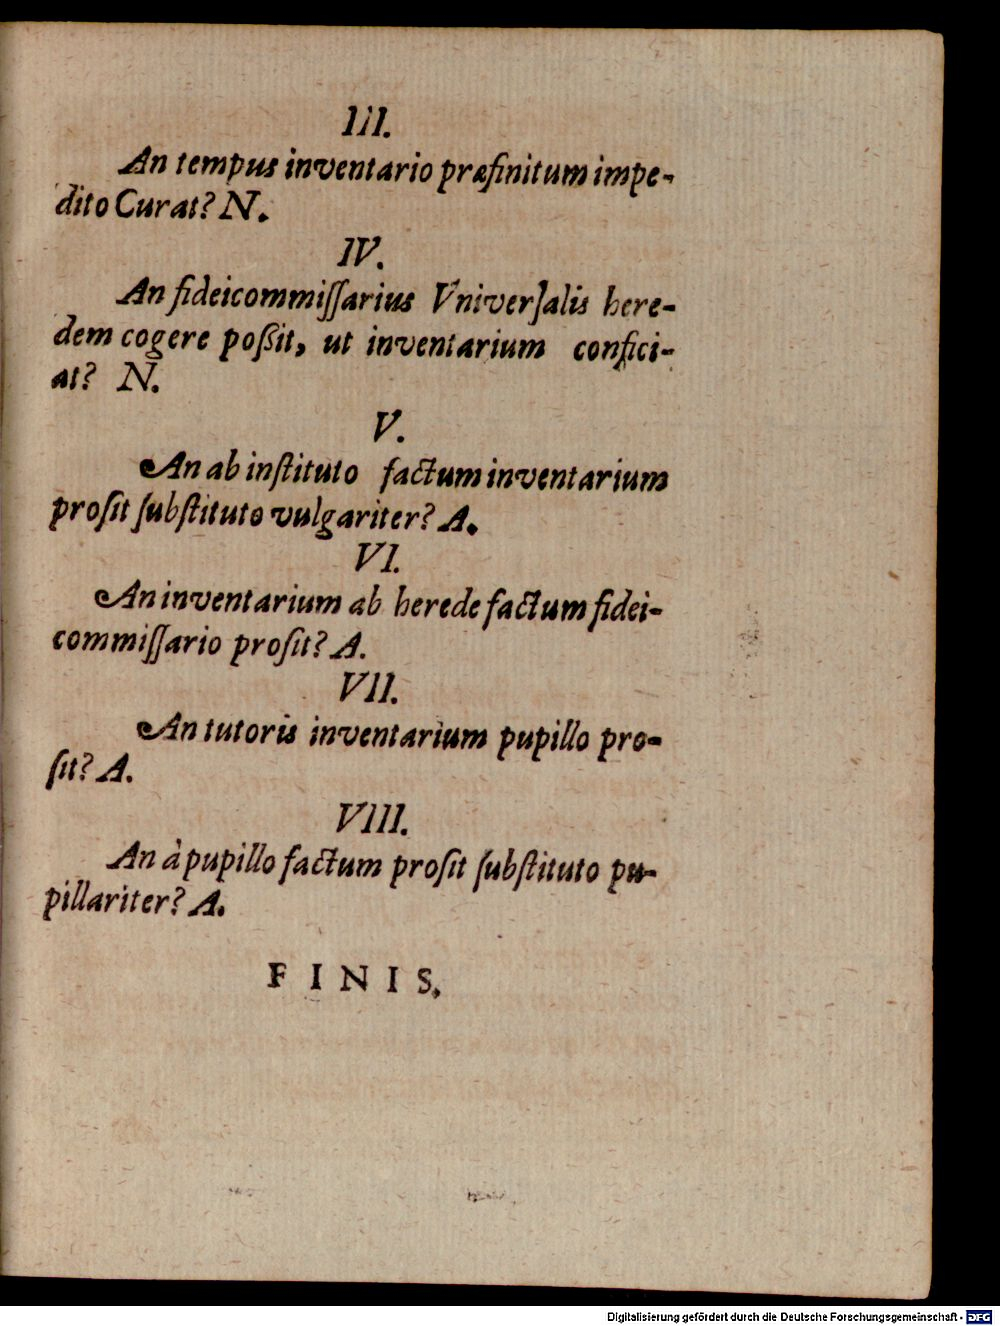 III.
An tempus inventario præfinitum impe-
dito Curat? N.
IV.
An fideicommiſſarius Vniverſalis here-
dem cogere poßit, ut inventarium confici-
at? N.
V.
An ab inſtituto factum inventarium
proſit ſubſtituto vulgariter? A.
VI.
An inventarium ab herede factum fidei-
commiſſario proſit? A.
VII.
An tutoris inventarium pupillo pro-
ſit? A.
VIII.
An à pupillo factum proſit ſubſtituto pu-
pillariter? A.
FINIS.
Digitalisierung gefördert durch die Deutsche Forschungsgemeinschaft - DFG